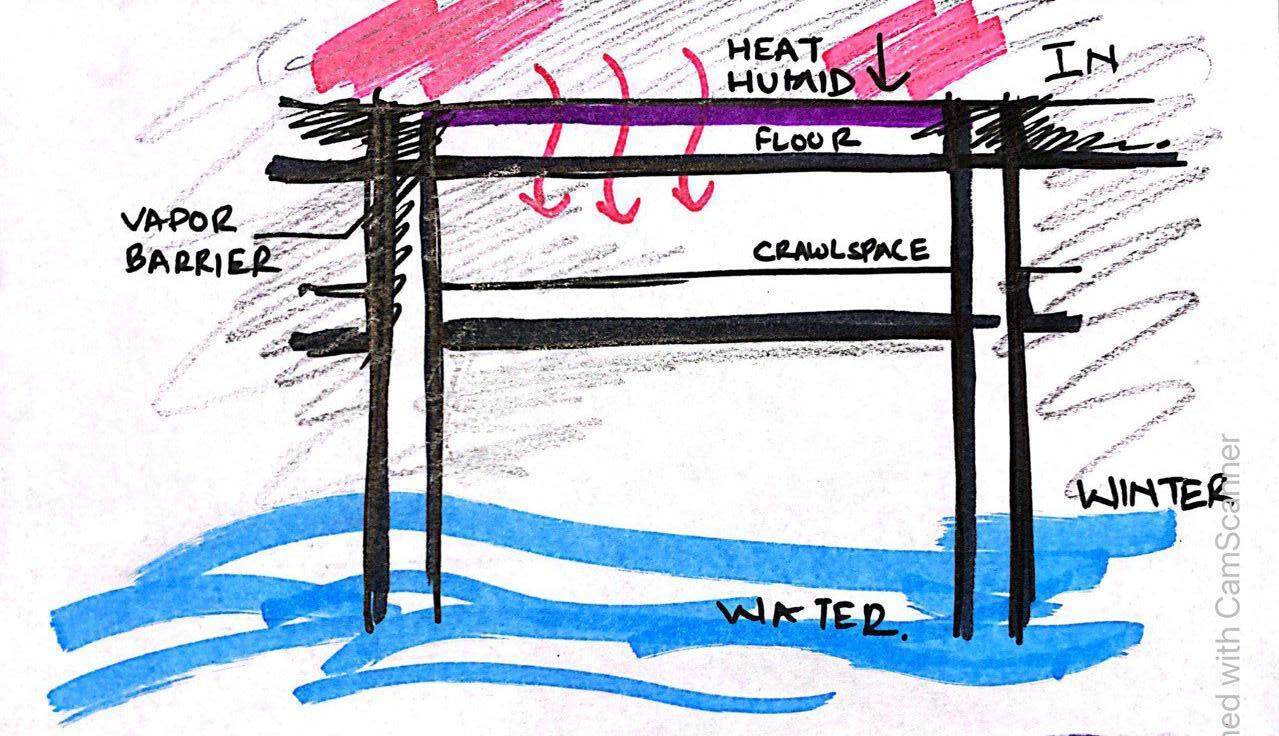 HEAT
HUMID
IN
FLOUR
VAPOR
BARRIER
CRAWLSPACE
WINTER
WATER.
ned with CamScanner